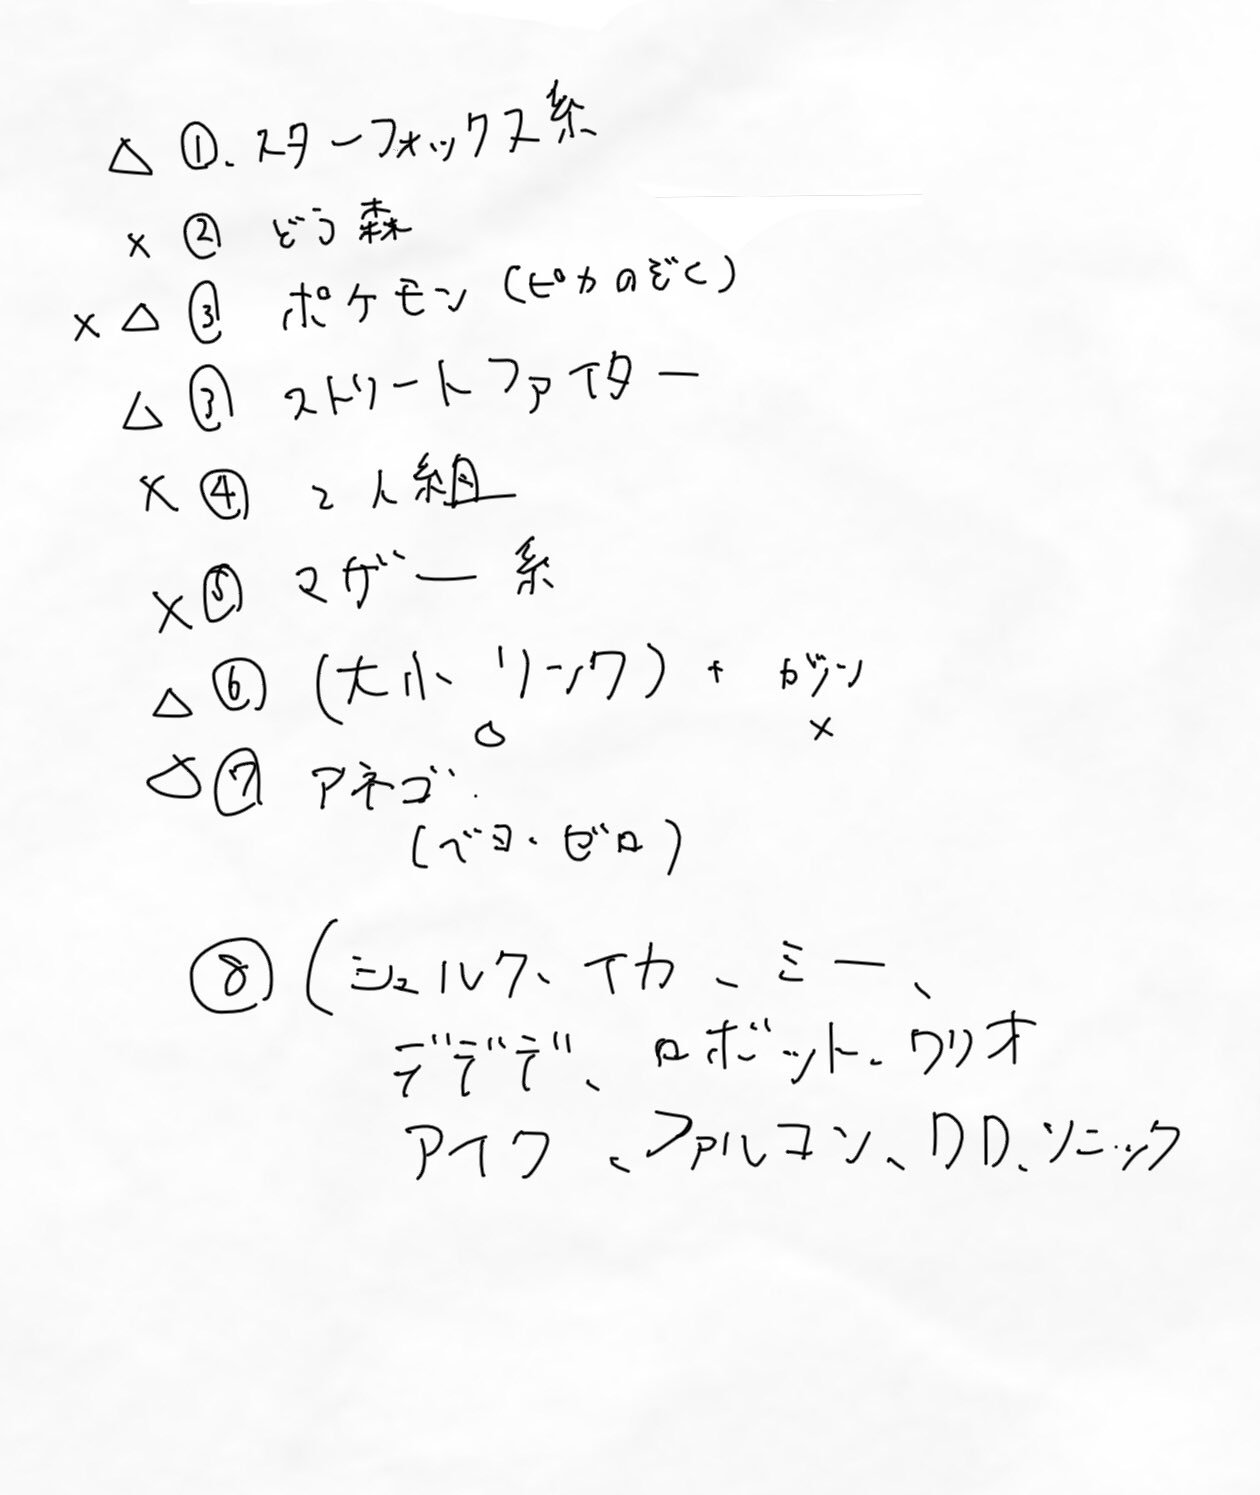 △ ①. スターフォックス系
× ② どう森
× △ ③ ポケモン (ピカのぞく)
△ ③ ストリートファイター
× ④ 2人組
× ⑤ マザー系
△ ⑥ (大小リンク) + ガノン
△ ×
△ ⑦ アネゴ
(ベヨ・ゼロ)
⑧ (シュルク、イカ、ミー、
デデデ、ロボット、ワリオ
アイク、ファルコン、DD、ソニック